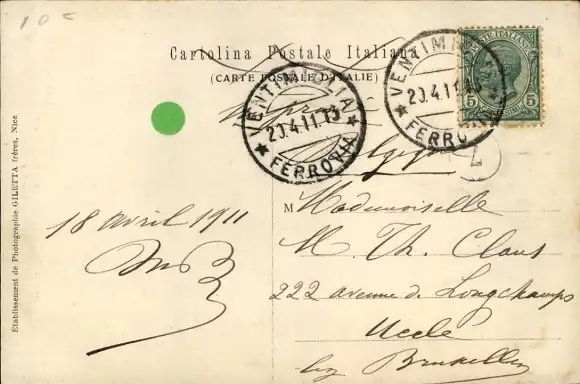 10 c
Cartolina Postale Italiana
(CARTE POSTALE D'ITALIE)
VENTIMIGLIA
20.4.11.13
★ FERROVIA ★
VENTIMIGLIA
20.4.11.13
★ FERROVIA
POSTE ITALIANE
5 5
Établissement de Photographie GILETTA frères, Nice
18 avril 1911
M Mademoiselle
M. Th. Claus
222 avenue de Longchamps
Uccle
by Bruxelles